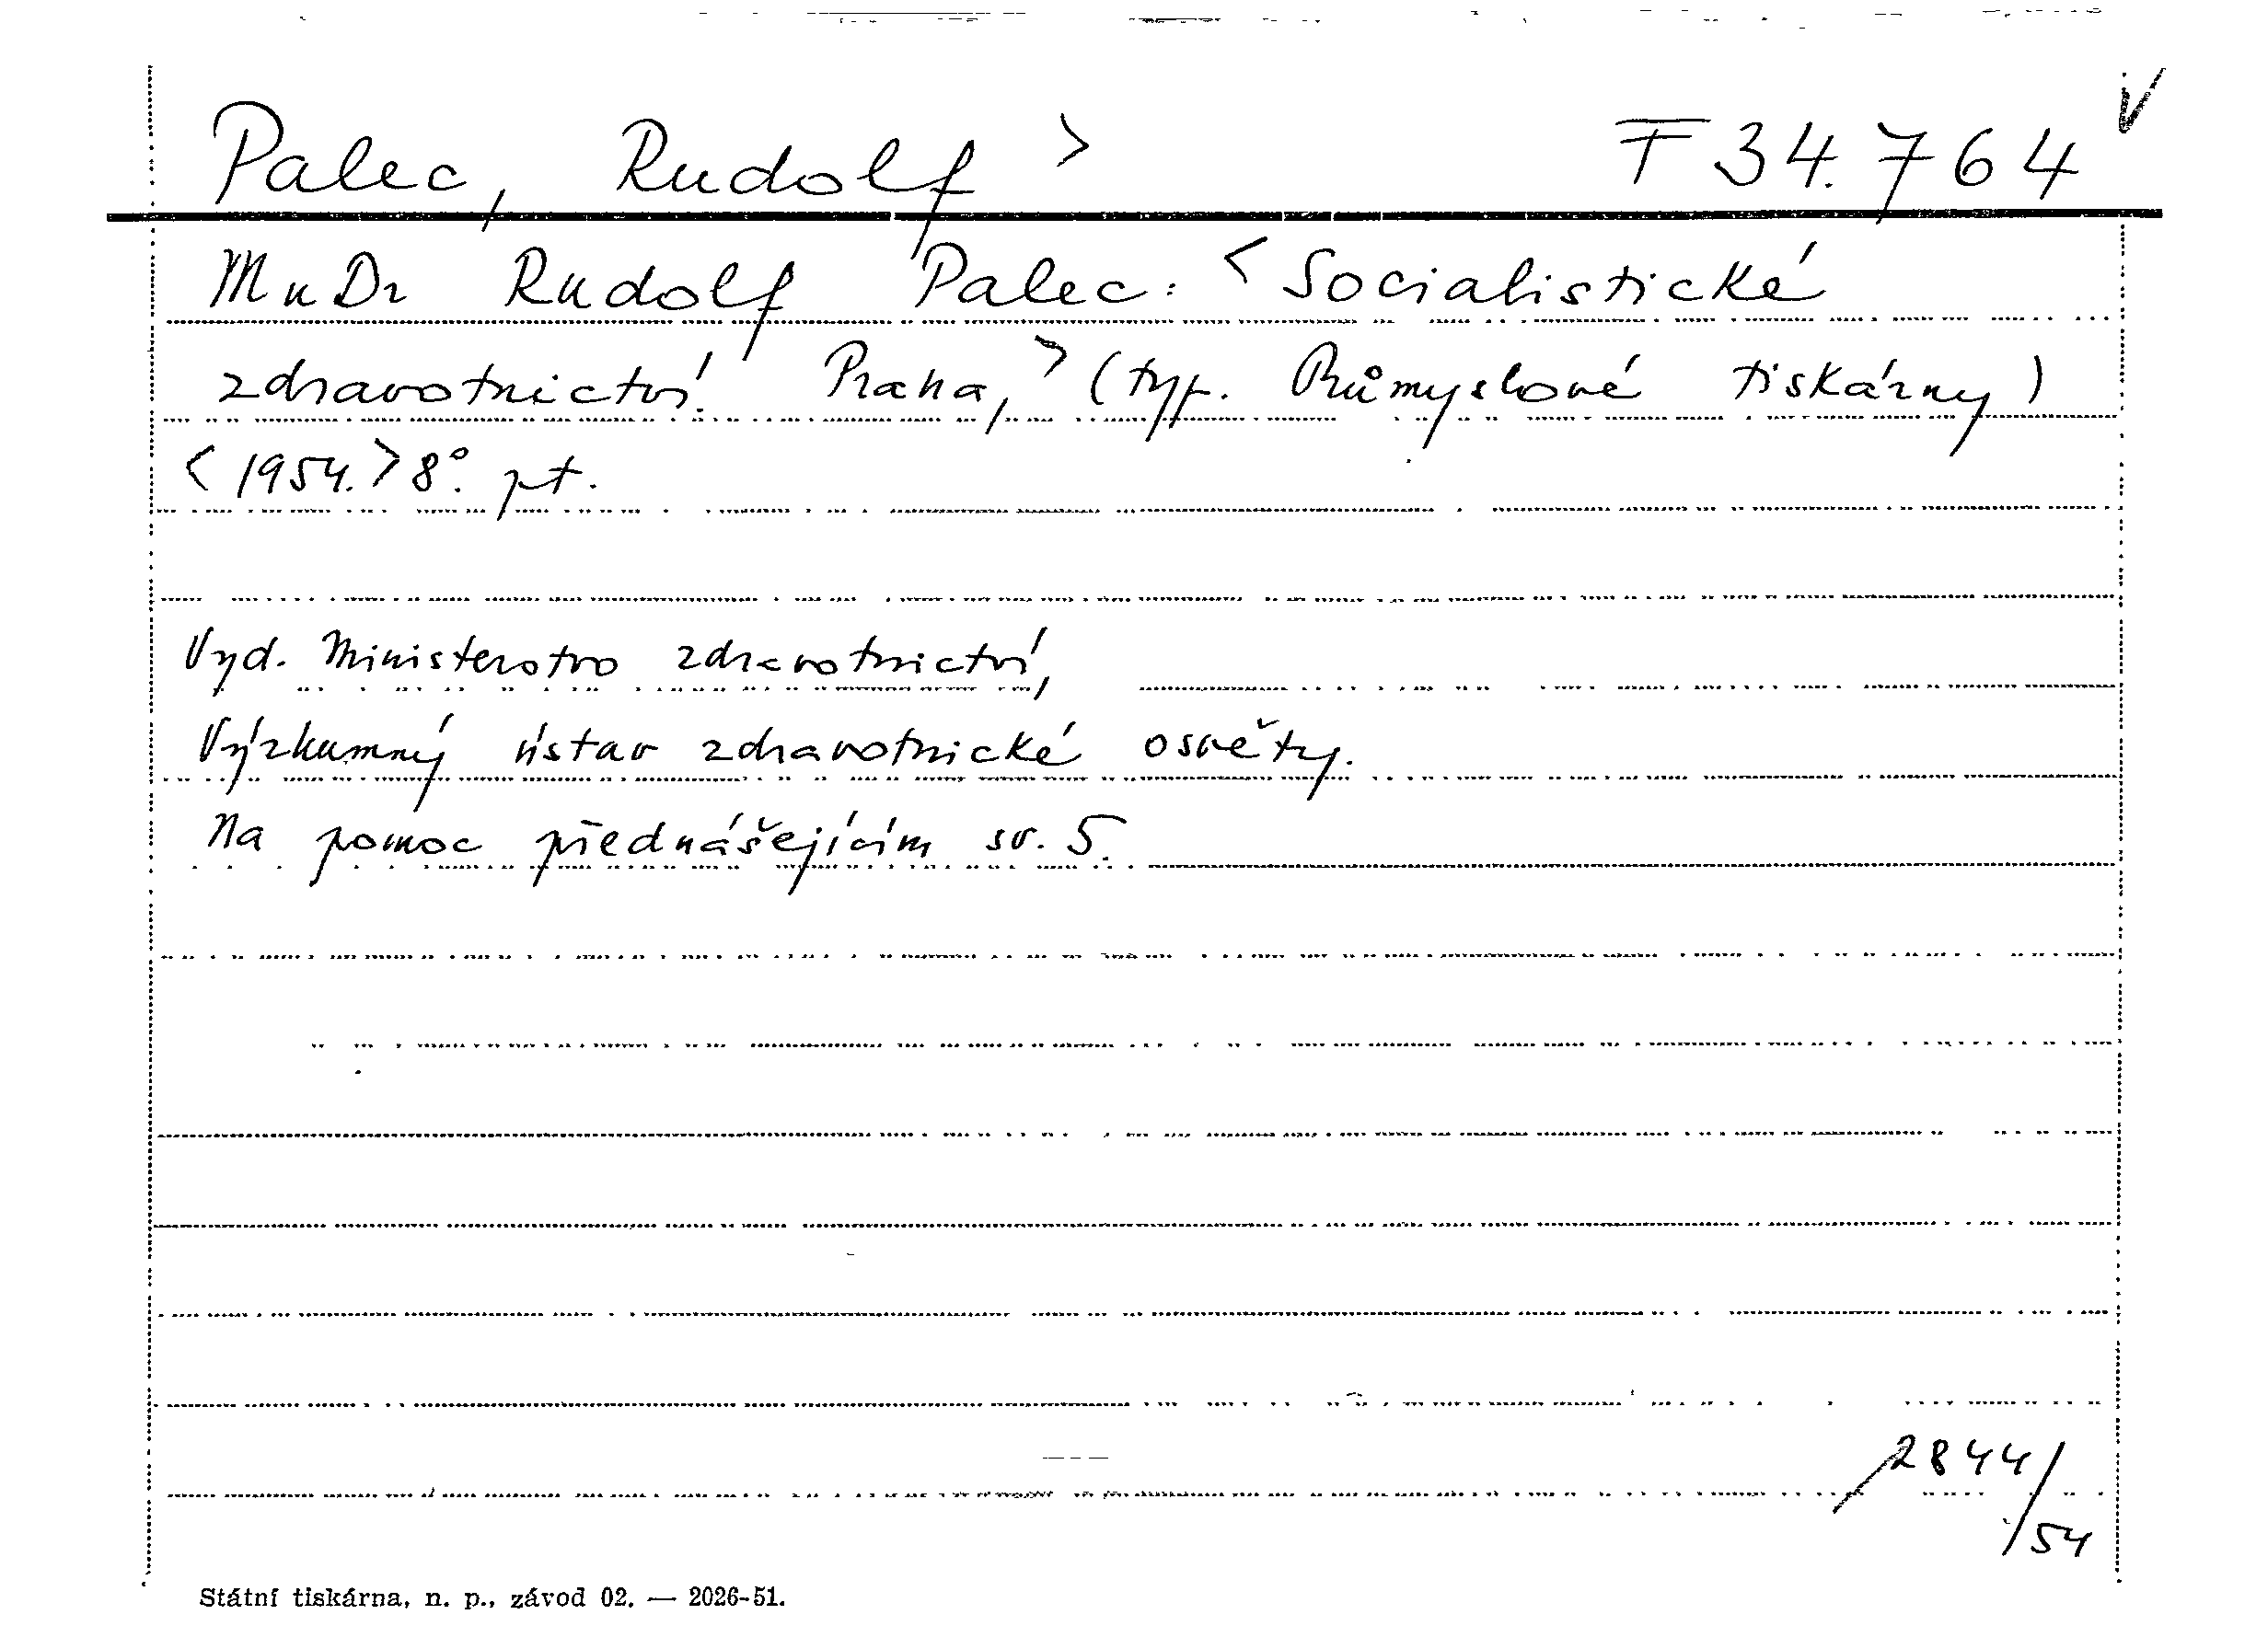 Palec, Rudolf > F 34.764 V
MuDr Rudolf Palec: < Socialistické
zdravotnictví. Praha, > (typ. Průmyslové tiskárny)
< 1954. > 8°. pt.
Vyd. Ministerstvo zdravotnictví,
Výzkumný ústav zdravotnické osvěty.
Na pomoc přednášejícím sv. 5.
2844/
/54
Státní tiskárna, n. p., závod 02. — 2026-51.